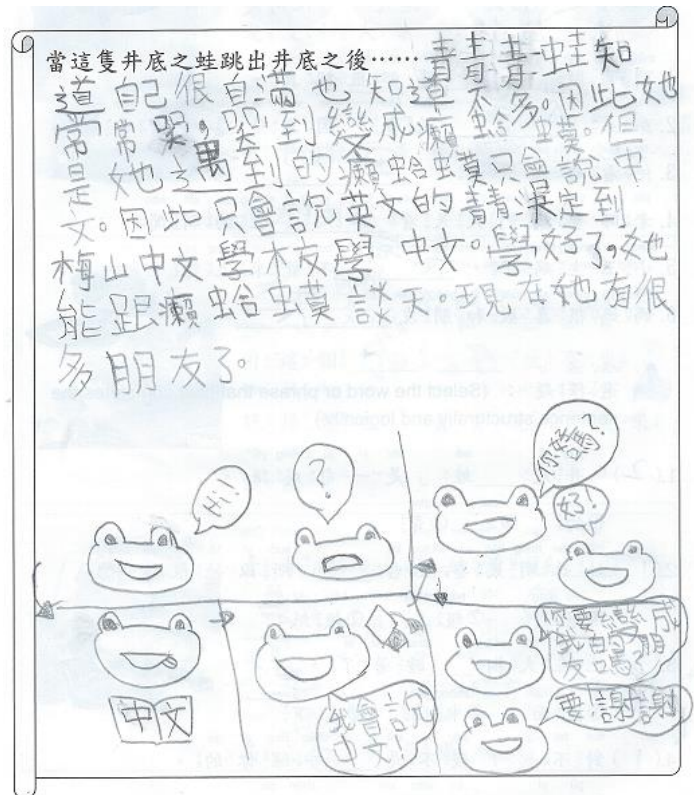 當這隻井底之蛙跳出井底之後……青青青蛙知
道自己很自滿也知道不多。因此她
常常哭。哭到變成癩蛤蟆。但
是她遇到的癩蛤蟆只會說中
文。因此只會說英文的青蛙決定到
梅山中文學校學中文。學好了,她
能跟癩蛤蟆談天。現在她有很
多朋友了。
Hi!
?
你好嗎?
好!
中文
我會說
中文!
你要變成
我的朋
友嗎?
要謝謝